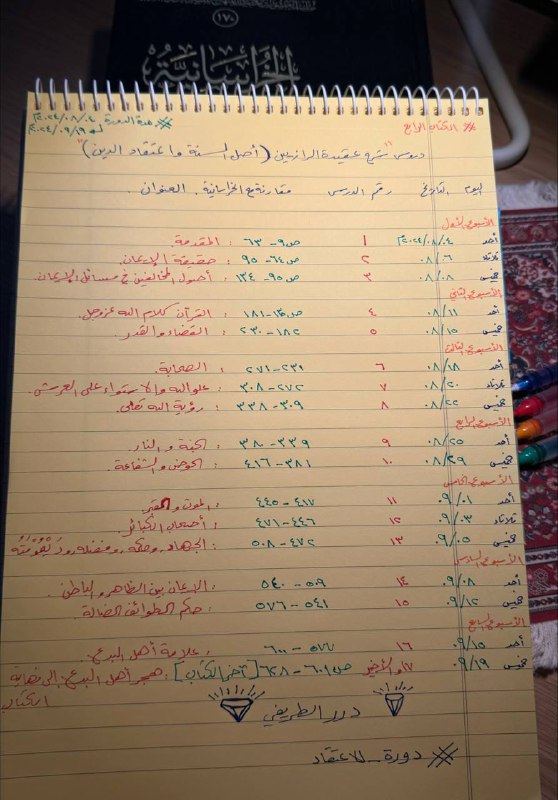 (١٧٠)
الخراسانية
** الكتاب الرابع
** مدة الدورة ٢٠٢٤/٠٨/٠٤
← ٢٠٢٤/٠٩/١٩
دروس "شرح عقيدة الرازيين (أصل السنة واعتقاد الدين)"
اليوم التاريخ رقم الدرس مقارنة مع الخراسانية. العنوان.
الأسبوع الأول
أحد ٢٠٢٤/٠٨/٠٤ ١ ص٩-٦٣ : المقدمة
ثلاثاء ٠٨/٠٦ ٢ ص٦٤-٩٥ : حقيقة الإيمان.
خميس ٠٨/٠٨ ٣ ص٩٥-١٣٤ : أصول المخالفين في مسائل الإيمان.
الأسبوع الثاني
أحد ٠٨/١١ ٤ ص١٣٥-١٨١ : القرآن كلام الله عزوجل.
خميس ٠٨/١٥ ٥ ١٨٢-٢٣٠ : القضاء والقدر.
الأسبوع الثالث
أحد ٠٨/١٨ ٦ ٢٣١-٢٧١ : الصحابة.
ثلاثاء ٠٨/٢٠ ٧ ٢٧٢-٣٠٨ : علو الله والاستواء على العرش.
خميس ٠٨/٢٢ ٨ ٣٠٩-٣٣٨ : رؤية الله تعالى.
الأسبوع الرابع
أحد ٠٨/٢٥ ٩ ٣٣٩-٣٨٠ : الجنة والنار.
خميس ٠٨/٢٩ ١٠ ٣٨١-٤١٦ : الحوض والشفاعة.
الأسبوع الخامس
أحد ٠٩/٠١ ١١ ٤١٧-٤٤٥ : الموت والقبر
ثلاثاء ٠٩/٠٣ ١٢ ٤٤٦-٤٧١ : أصحاب الكبائر.
خميس ٠٩/٠٥ ١٣ ٤٧٢-٥٠٨ : الجهاد، وحكمه، وفضله،
الأسبوع السادس
أحد ٠٩/٠٨ ١٤ ٥٠٩-٥٤٠ : الإيمان بين الظاهر والباطن.
خميس ٠٩/١٢ ١٥ ٥٤١-٥٧٦ : حكم الطوائف الضالة.
الأسبوع السابع
أحد ٠٩/١٥ ١٦ ٥٧٧-٦٠٠ : علامة أهل البدع.
خميس ٠٩/١٩ ١٧ والأخير ص٦٠١-٦٢٨ [آخر الكتاب] : هجر أهل البدع. إلى نهاية
الكتاب
درر الطريفي
** دورة الاعتقاد